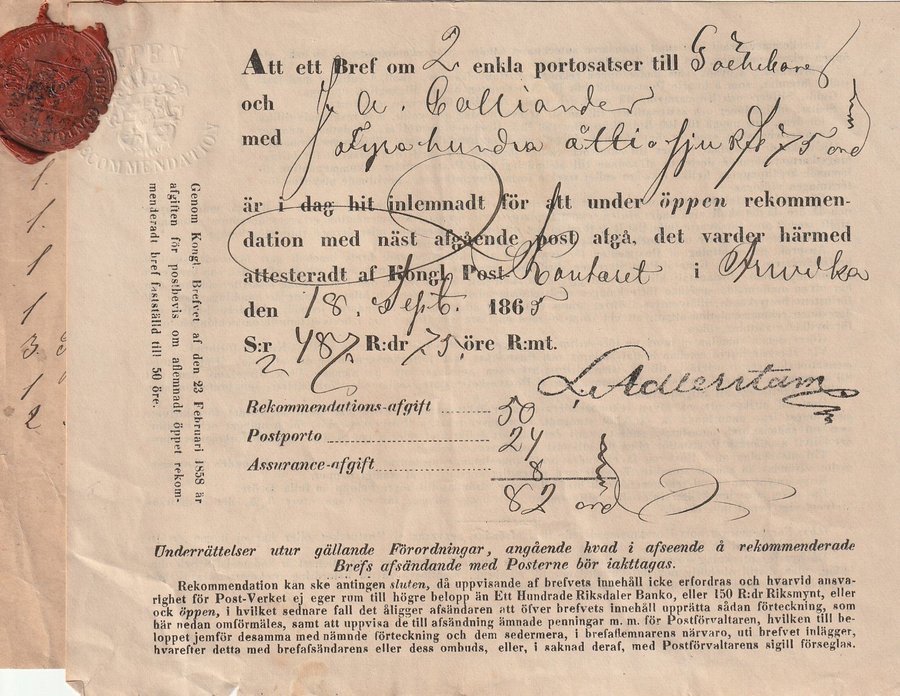 ARVIKA
ÖPPEN
RECOMMENDATION
Att ett Bref om 2 enkla portosatser till
och J A. Calliander
med Fyra hundra ätti sju 75
är i dag hit inlemnadt för att under öppen rekommen-
dation med näst afgående post afgå, det varder härmed
attesteradt af Kongl Post-Kontoret i Arvika
den 18. Sept. 1865
S:r 487 R:dr 75 öre R:mt.
L. Adlerstam
Rekommendations-afgift 50
Postporto 24
Assurance-afgift 8
82
Underrättelser utur gällande Förordningar, angående hvad i afseende å rekommenderade
Brefs afsändande med Posterne bör iakttagas.
Rekommendation kan ske antingen sluten, då uppvisande af brefvets innehåll icke erfordras och hvarvid ansva-
righet för Post-Verket ej eger rum till högre belopp än Ett Hundrade Riksdaler Banko, eller 150 R:dr Riksmynt, eller
ock öppen, i hvilket sednare fall det åligger afsändaren att öfver brefvets innehåll upprätta sådan förteckning, som
här nedan omförmäles, samt att uppvisa de till afsändning ämnade penningar m. m. för Postförvaltaren, hvilken till be-
loppet jemför desamma med nämnde förteckning och dem sedermera, i brefaflemnarens närvaro, uti brefvet inlägger,
hvarefter detta med brefafsändarens eller dess ombuds, eller, i saknad deraf, med Postförvaltarens sigill förseglas.
Genom Kongl. Brefvet af den 23 Februari 1858 är
afgiften för postbevis om aflemnadt öppet rekom-
menderadt bref fastställd till 50 öre.
1.
1.
1
1
3.
1
2